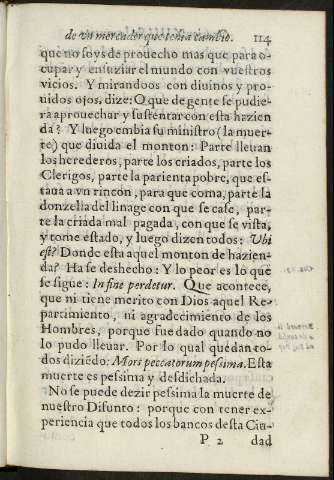 de vn mercader que tenia cambio. 114
que no soys de prouecho mas que para o-
cupar y ensuziar el mundo con vuestros
vicios. Y mirandoos con diuinos y pro-
uidos ojos, dize: O que de gente se pudie-
ra aprouechar y sustentar con esta hazien
da? Y luego embia su ministro (la muer-
te) que diuida el monton: Parte lleuan
los herederos, parte los criados, parte los
Clerigos, parte la parienta pobre, que es-
taua a vn rincon, para que coma, parte la
donzella del linage con que se case, par-
te la criada mal pagada, con que se vista,
y tome estado, y luego dizen todos: Vbi
est? Donde esta aquel monton de hazien-
da? Ha se deshecho: Y lo peor es lo que
se sigue: In fine perdetur. Que acontece,
que ni tiene merito con Dios aquel Re-
partimiento, ni agradecimiento de los
Hombres, porque fue dado quando no
lo pudo lleuar. Por lo qual quedan to-
dos diziẽdo: Mors peccatorum pessima. Esta
muerte es pessima y desdichada.
No se puede dezir pessima la muerte de
nuestro Difunto: porque con tener ex-
periencia que todos los bancos desta Ciu-
P 2 dad